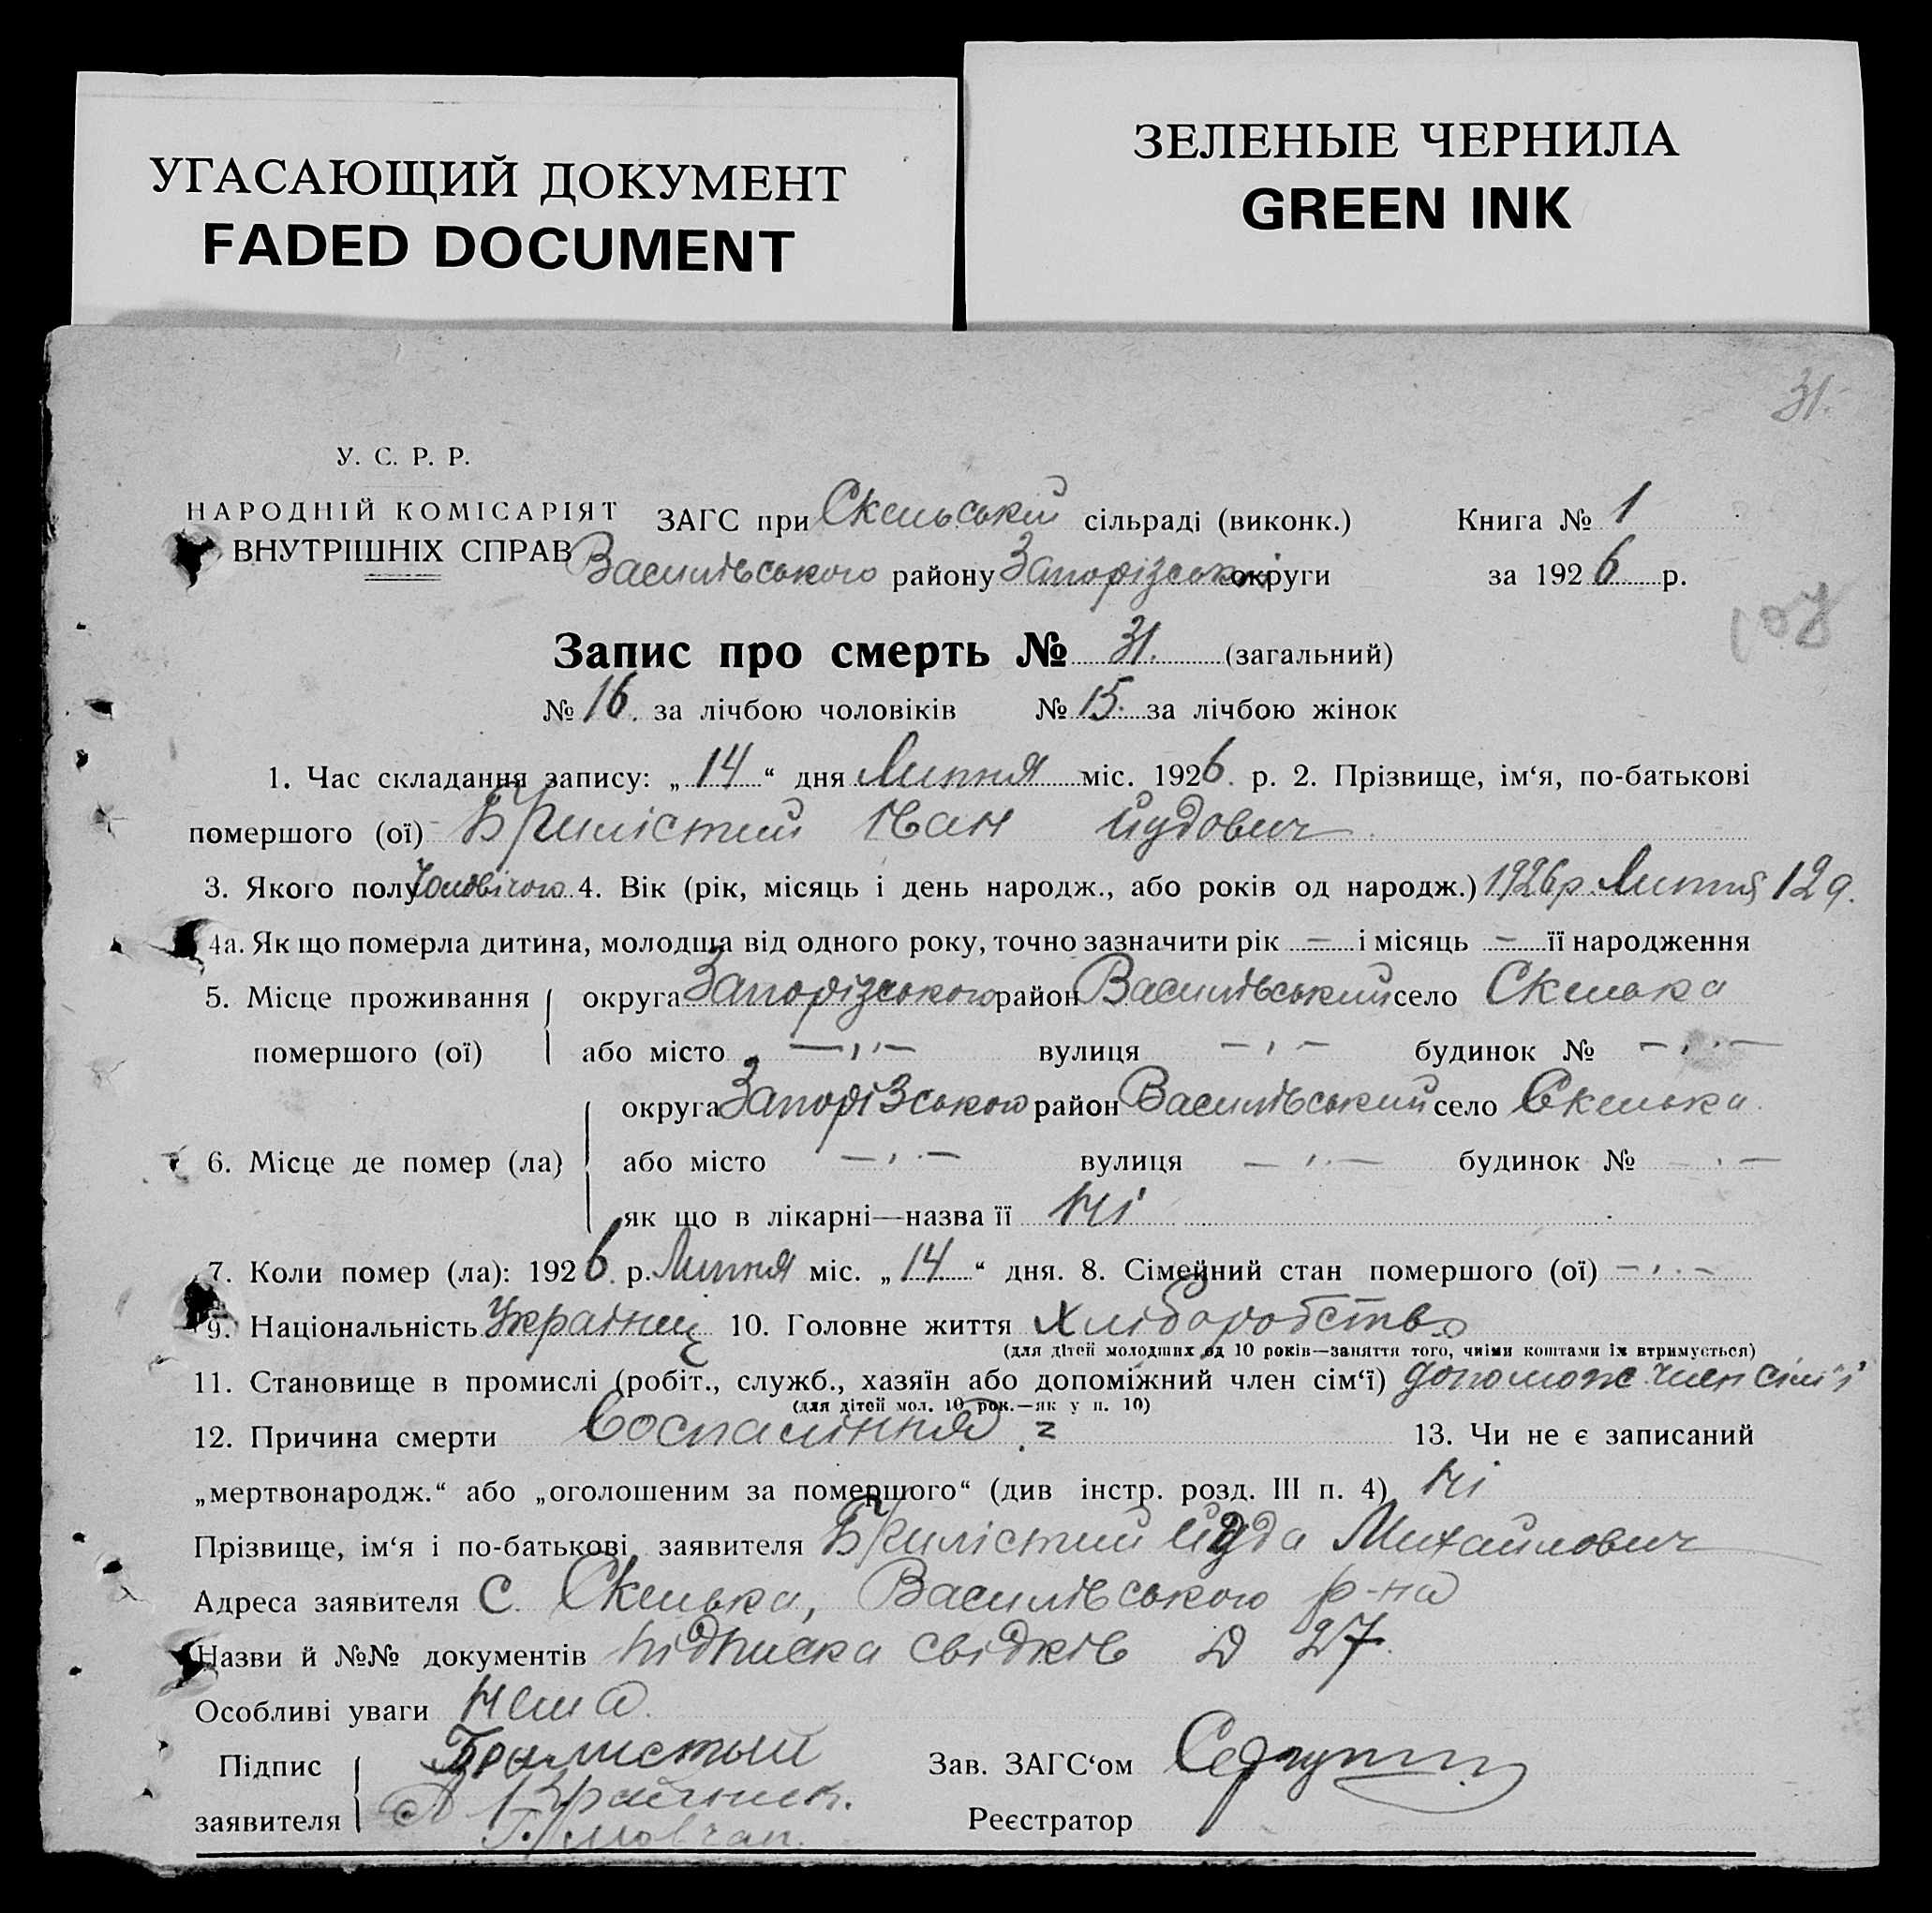 УГАСАЮЩИЙ ДОКУМЕНТ
FADED DOCUMENT
ЗЕЛЕНЫЕ ЧЕРНИЛА
GREEN INK
31.
У. С. Р. Р.
НАРОДНІЙ КОМІСАРІЯТ
ВНУТРІШНІХ СПРАВ
ЗАГС при Скельській сільраді (виконк.) Книга № 1
Василівського району Запорізської округи за 1926 р.
108
Запис про смерть № 31. (загальний)
№ 16. за лічбою чоловіків № 15. за лічбою жінок
1. Час складання запису: „14“ дня Липня міс. 1926. р. 2. Прізвище, ім‘я, по-батькові
помершого (ої) Брилістий Іван Йудович
3. Якого полу Чоловічого 4. Вік (рік, місяць і день народж., або років од народж.) 1926 р. Липня 12 д.
4а. Як що померла дитина, молодша від одного року, точно зазначити рік — і місяць — її народження
5. Місце проживання округа Запорізського район Василівський село Скелька
помершого (ої) або місто —„— вулиця —„— будинок № —„—
округа Запорізського район Василівський село Скелька
6. Місце де помер (ла) або місто —„— вулиця —„— будинок № —„—
як що в лікарні—назва її Ні
7. Коли помер (ла): 1926. р. Липня міс. „14“ дня. 8. Сімейний стан помершого (ої) —„—
9. Національність Українец 10. Головне життя Хліборобство
(для дітей молодших од 10 років—заняття того, чиїми коштами їх втримується)
11. Становище в промислі (робіт., служб., хазяїн або допоміжний член сім‘ї) допомож член сім'ї
(для дітей мол. 10 рок.—як у п. 10)
12. Причина смерти Воспаління 13. Чи не є записаний
„мертвонародж.“ або „оголошеним за помершого“ (див інстр. розд. III п. 4) Ні
Прізвище, ім‘я і по-батькові заявителя Брилістий Йуда Михайлович
Адреса заявителя С. Скелька, Василівського р-на
Назви й №№ документів підписка свідків 27.
Особливі уваги Нема.
Підпис Брилистый Зав. ЗАГС‘ом
заявителя Реєстратор